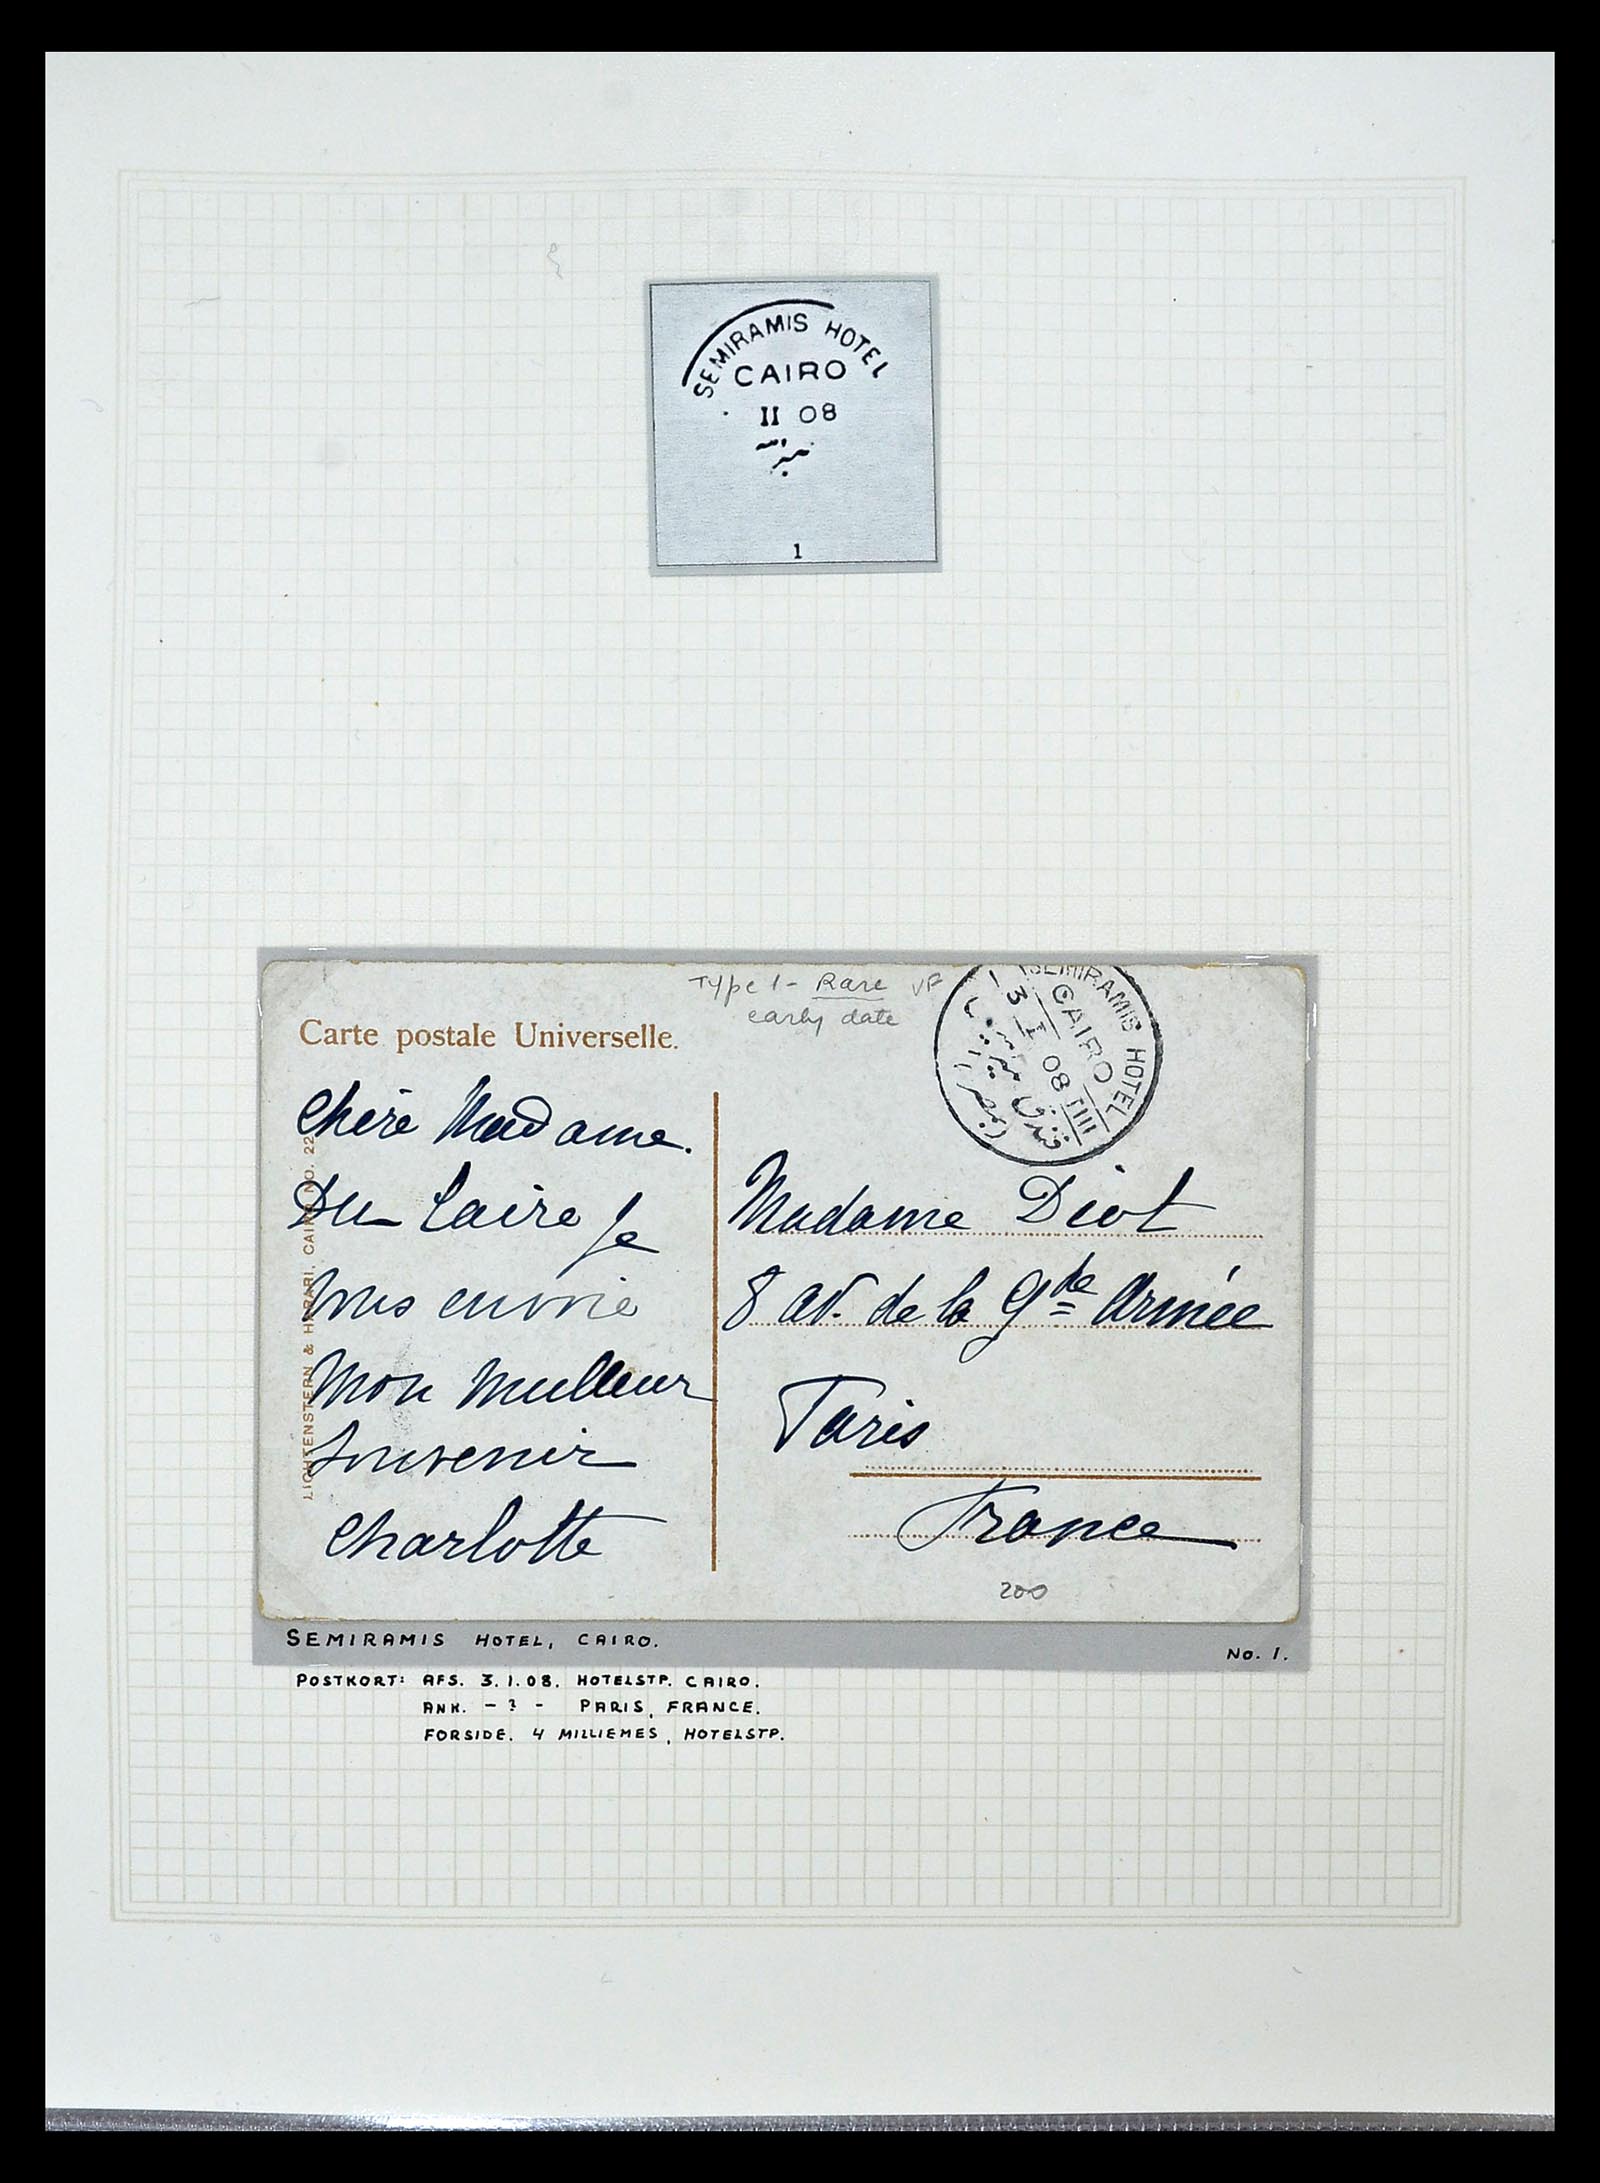 SEMIRAMIS HOTEL
CAIRO
II 08
1
Type 1 - Rare VF
early date
SEMIRAMIS HOTEL
CAIRO
3 I 08 TIII
فندق سميراميس
(بمصر)
Carte postale Universelle.
LICHTENSTERN & HARARI, CAIRO NO. 22
Chère Madame.
Du Caire je
vous envoie
mon meilleur
souvenir
Charlotte
Madame Diot
8 av. de la Gde Armée
Paris
France
200
SEMIRAMIS HOTEL, CAIRO.
No. 1.
POSTKORT: AFS. 3.1.08. HOTELSTP. CAIRO.
ANK. - ? - PARIS, FRANCE.
FORSIDE. 4 MILLIEMES, HOTELSTP.